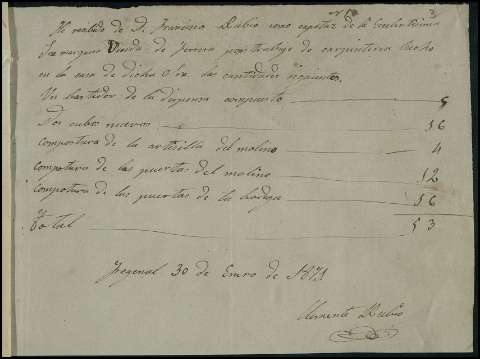 3
He recibido de D. Francisco Rubio como capataz de Dª Cecilia
Sra marquesa Viuda de Ferrera por trabajo de carpinteria hecho
en la casa de dicha Sra las cantidades siguientes.
Un bastidor de la dispensa compuesto 5
Dos cubos nuevos 16
compostura de la artesilla del molino 4
compotura de las puertas del molino 12
compotura de las puertas de la bodega 16
Total 53
Fregenal 30 de Enero de 1871
Clemente Rubio